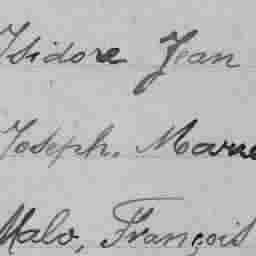 Isidore Jean
Joseph, Marie
Malo, François